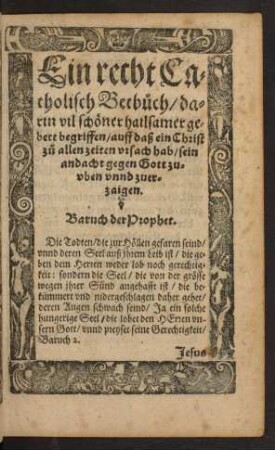 Ein recht Ca-
tholisch Betbůch/ da-
rin vil schöner hailsamer ge-
bett begriffen/ auff daß ein Christ
zů allen zeiten vrsach hab/ sein
andacht gegen Gott zu-
vben vnnd zuer-
zaigen.
Baruch der Prophet.
Die Todten/ die zur Höllen gefaren seind/
vnnd deren Seel auß jhrem Leib ist/ die ge-
ben dem Herren weder lob noch gerechtig-
keit: sondern die Seel/ die von der grösse
wegen jhrer Sünd angehafft ist/ die be-
kümmert vnd nidergeschlagen daher gehet/
deren Augen schwach seind/ Ja ein solche
hungerige Seel/ die lobet den HErren vn-
sern Gott/ vnnd preyset seine Gerechtigkeit/
Baruch 2.
Jesus